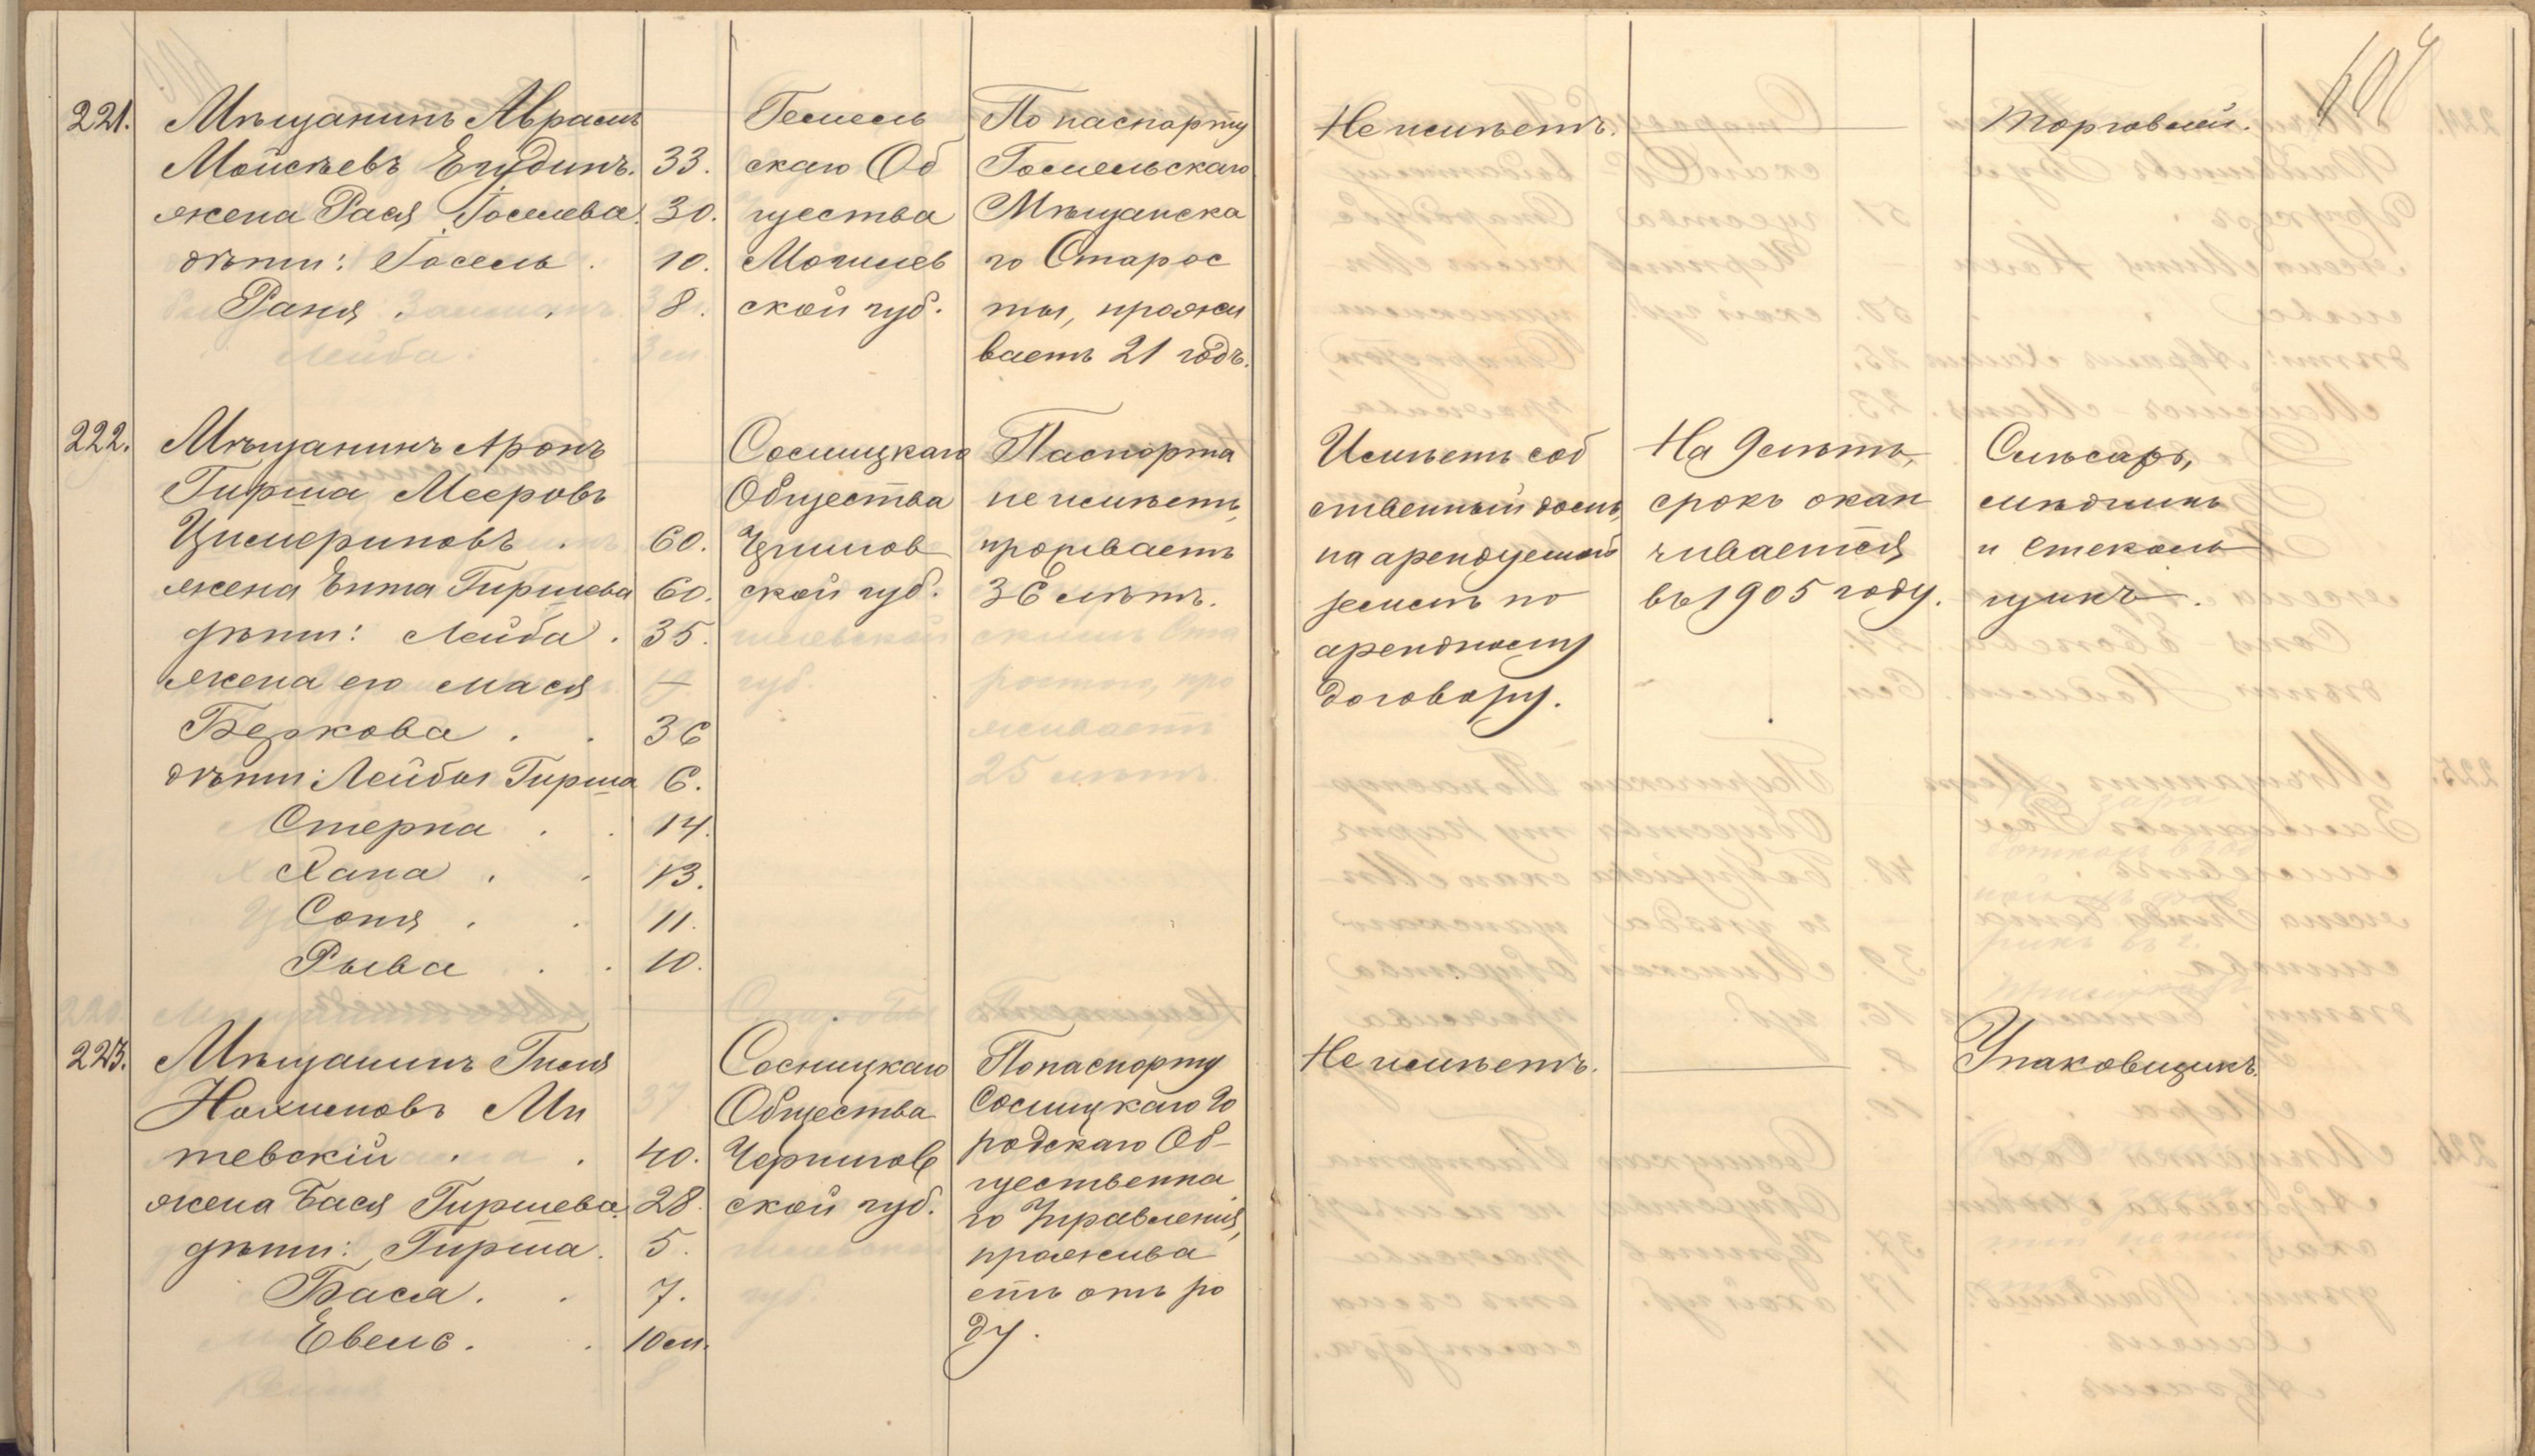 604
221. Мѣщанинъ Аврамъ
Мойсѣевъ Егудинъ. 33.
жена Рася Іоселева. 30.
дѣти: Іосель . 10.
Раня . . 8.
Гомель
скаго Об
щества
Могилев
ской губ.
По паспорту
Гомельскаго
Мѣщанска
го Старос
ты, прожи
ваетъ 21 годъ.
Не имѣетъ.
Торговлей.
222. Мѣщанинъ Аронъ
Гирша Мееровъ
Цимериновъ . 60.
жена Ента Гиршева 60.
дѣти: Лейба . 35.
жена его Мася
Беркова . . 36
дѣти: Лейбы Гирша 6.
Стерна . . 14.
Хана . . 13.
Соня . . 11.
Рыва . . 10.
Сосницкаго
Общества
Чернигов
ской губ.
Паспорта
не имѣетъ,
проживаетъ
36 лѣтъ.
Имѣетъ соб
ственный домъ,
на арендуемой
землѣ по
арендному
договору.
На 9 лѣтъ,
срокъ окан
чивается
въ 1905 году.
Слѣсарь,
мѣдникъ
и стеколь
щикъ.
223. Мѣщанинъ Гиля
Нохимовъ Ми
тевскій . . 40.
жена Бася Гиршева. 28.
дѣти: Гирша. 5.
Бася. . 7.
Евель. . 10 м.
Сосницкаго
Общества
Чернигов
ской губ.
По паспорту
Сосницкаго Го
родскаго Об-
щественна
го Управленія,
прожива
етъ отъ ро
ду.
Не имѣетъ.
Упаковщикъ.